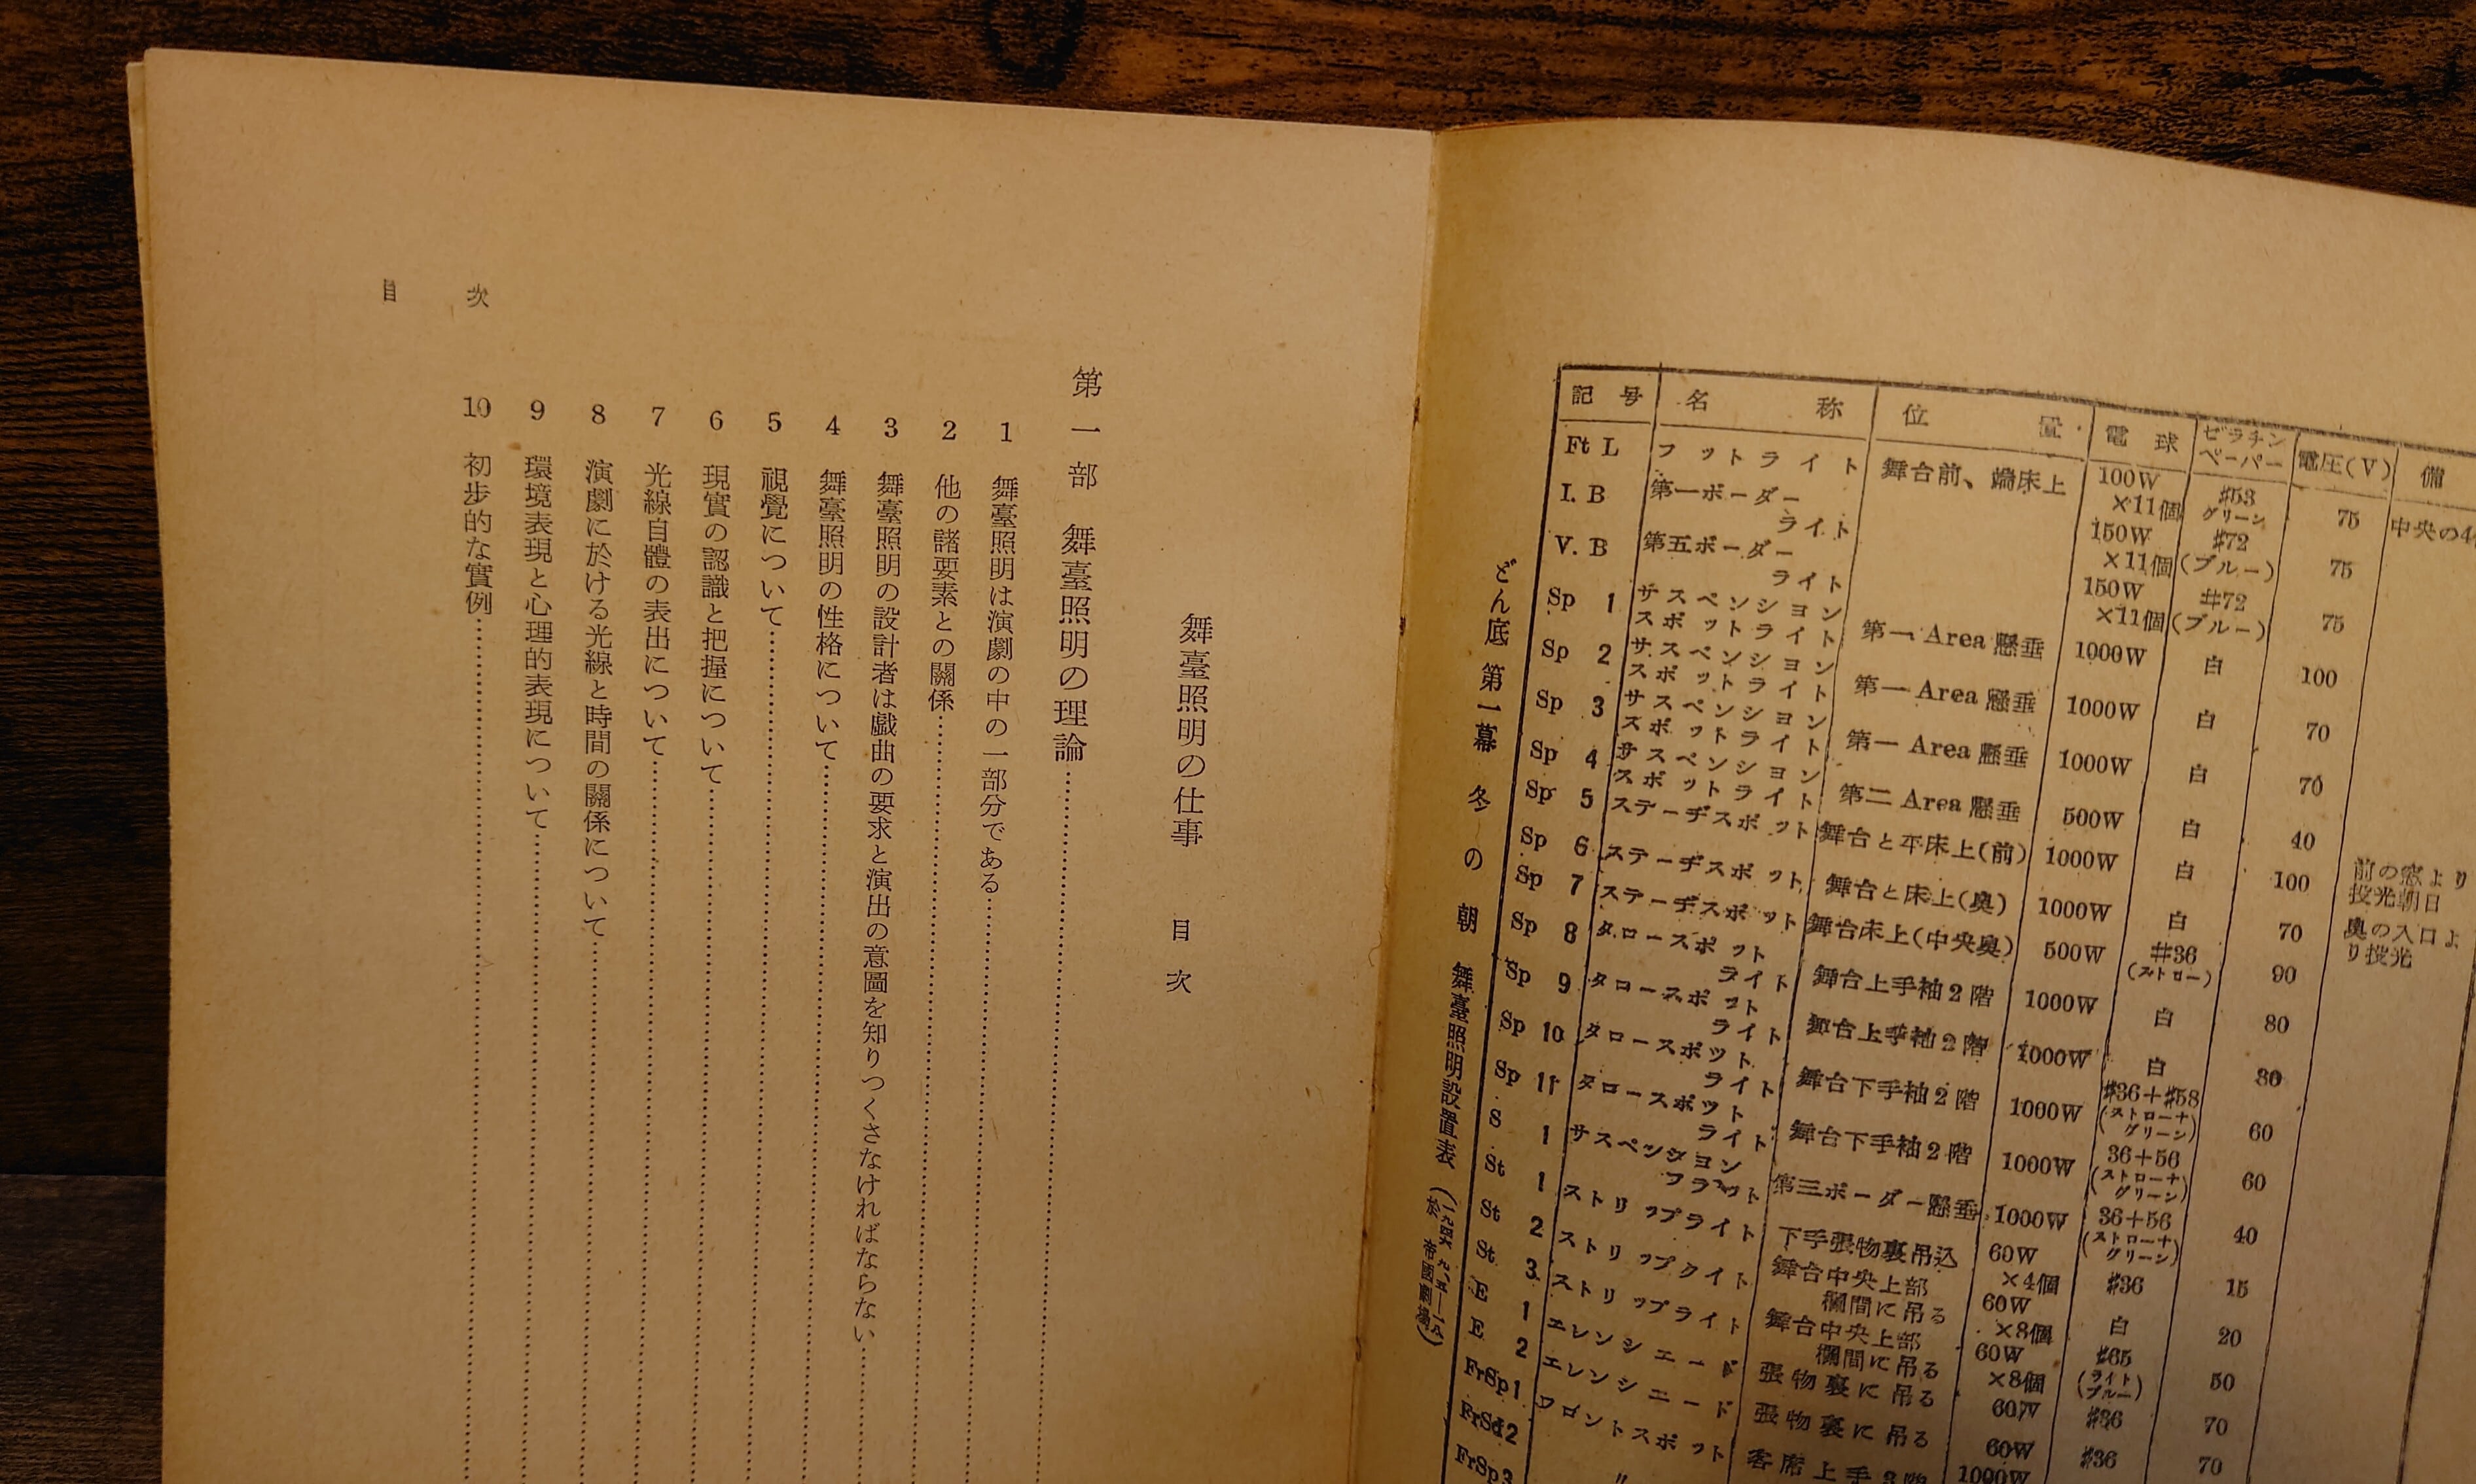 舞臺照明の仕事 目次
第一部 舞臺照明の理論
1 舞臺照明は演劇の中の一部分である
2 他の諸要素との關係
3 舞臺照明の設計者は戯曲の要求と演出の意圖を知りつくさなければならない
4 舞臺照明の性格について
5 視覺について
6 現實の認識と把握について
7 光線自體の表出について
8 演劇に於ける光線と時間の關係について
9 環境表現と心理的表現について
10 初歩的な實例
目次
どん底 第一幕 冬の朝 舞臺照明設置表
於 帝國劇場
記号 名称 位置 電球 ゼラチンペーパー 電圧(V) 備
Ft L フットライト 舞台前、端床上 100W×11個 #53グリーン 75 中央の4
I. B 第一ボーダーライト 150W×11個 #72(ブルー) 75
V. B 第五ボーダーライト 150W×11個 #72(ブルー) 75
Sp 1 サスペンションスポットライト 第一Area懸垂 1000W 白 100
Sp 2 サスペンションスポットライト 第一Area懸垂 1000W 白 70
Sp 3 サスペンションスポットライト 第一Area懸垂 1000W 白 70
Sp 4 サスペンションスポットライト 第二Area懸垂 500W 白 40
Sp 5 ステーヂスポット 舞台と平床上(前) 1000W 白 100 前の窓より投光朝日
Sp 6 ステーヂスポット 舞台と床上(奥) 1000W 白 70 奥の入口より投光
Sp 7 ステーヂスポット 舞台床上(中央奥) 500W #36(ストロー) 90
Sp 8 タロースポットライト 舞台上手袖2階 1000W 白 80
Sp 9 タロースポットライト 舞台上手袖2階 1000W 白 80
Sp 10 タロースポットライト 舞台下手袖2階 1000W #36+#58(ストローナグリーン) 60
Sp 11 タロースポットライト 舞台下手袖2階 1000W 36+56(ストローナグリーン) 60
S 1 サスペッションフラット 第三ボーダー懸垂 1000W 36+56(ストローナグリーン) 40
St 1 ストリップライト 下手張物裏吊込 60W×4個 #36 15
St 2 ストリップクイト 舞台中央上部欄間に吊る 60W×8個 白 20
St 3 ストリップライト 舞台中央上部欄間に吊る 60W×8個 #65(ライトブルー) 50
E 1 エレンシエード 張物裏に吊る 60W #36 70
E 2 エレンシエード 張物裏に吊る 60W #36 70
FrSp1 フロントスポット 客席上手3階 1000W
FrSd2 〃
FrSp3